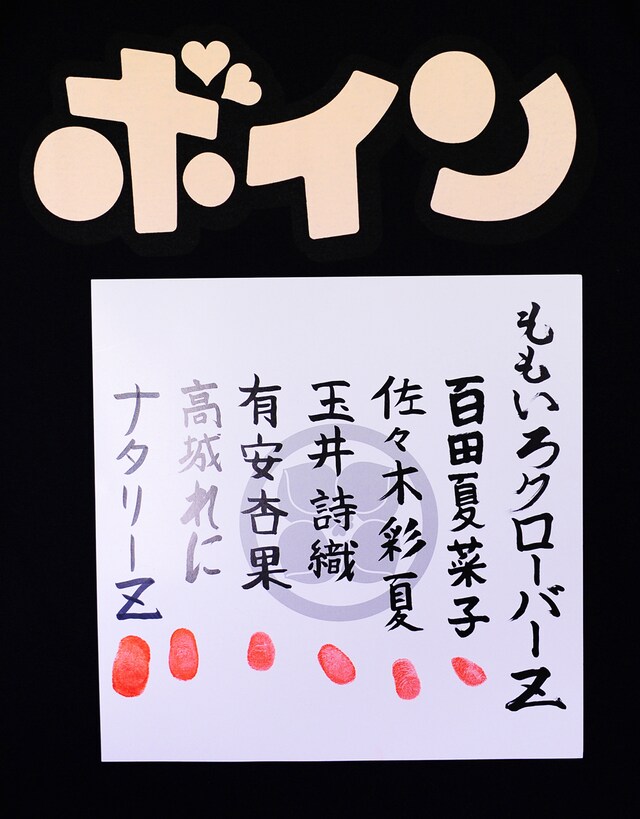 ボイン
ももいろクローバーZ
百田夏菜子
佐々木彩夏
玉井詩織
有安杏果
高城れに
ナタリーZ